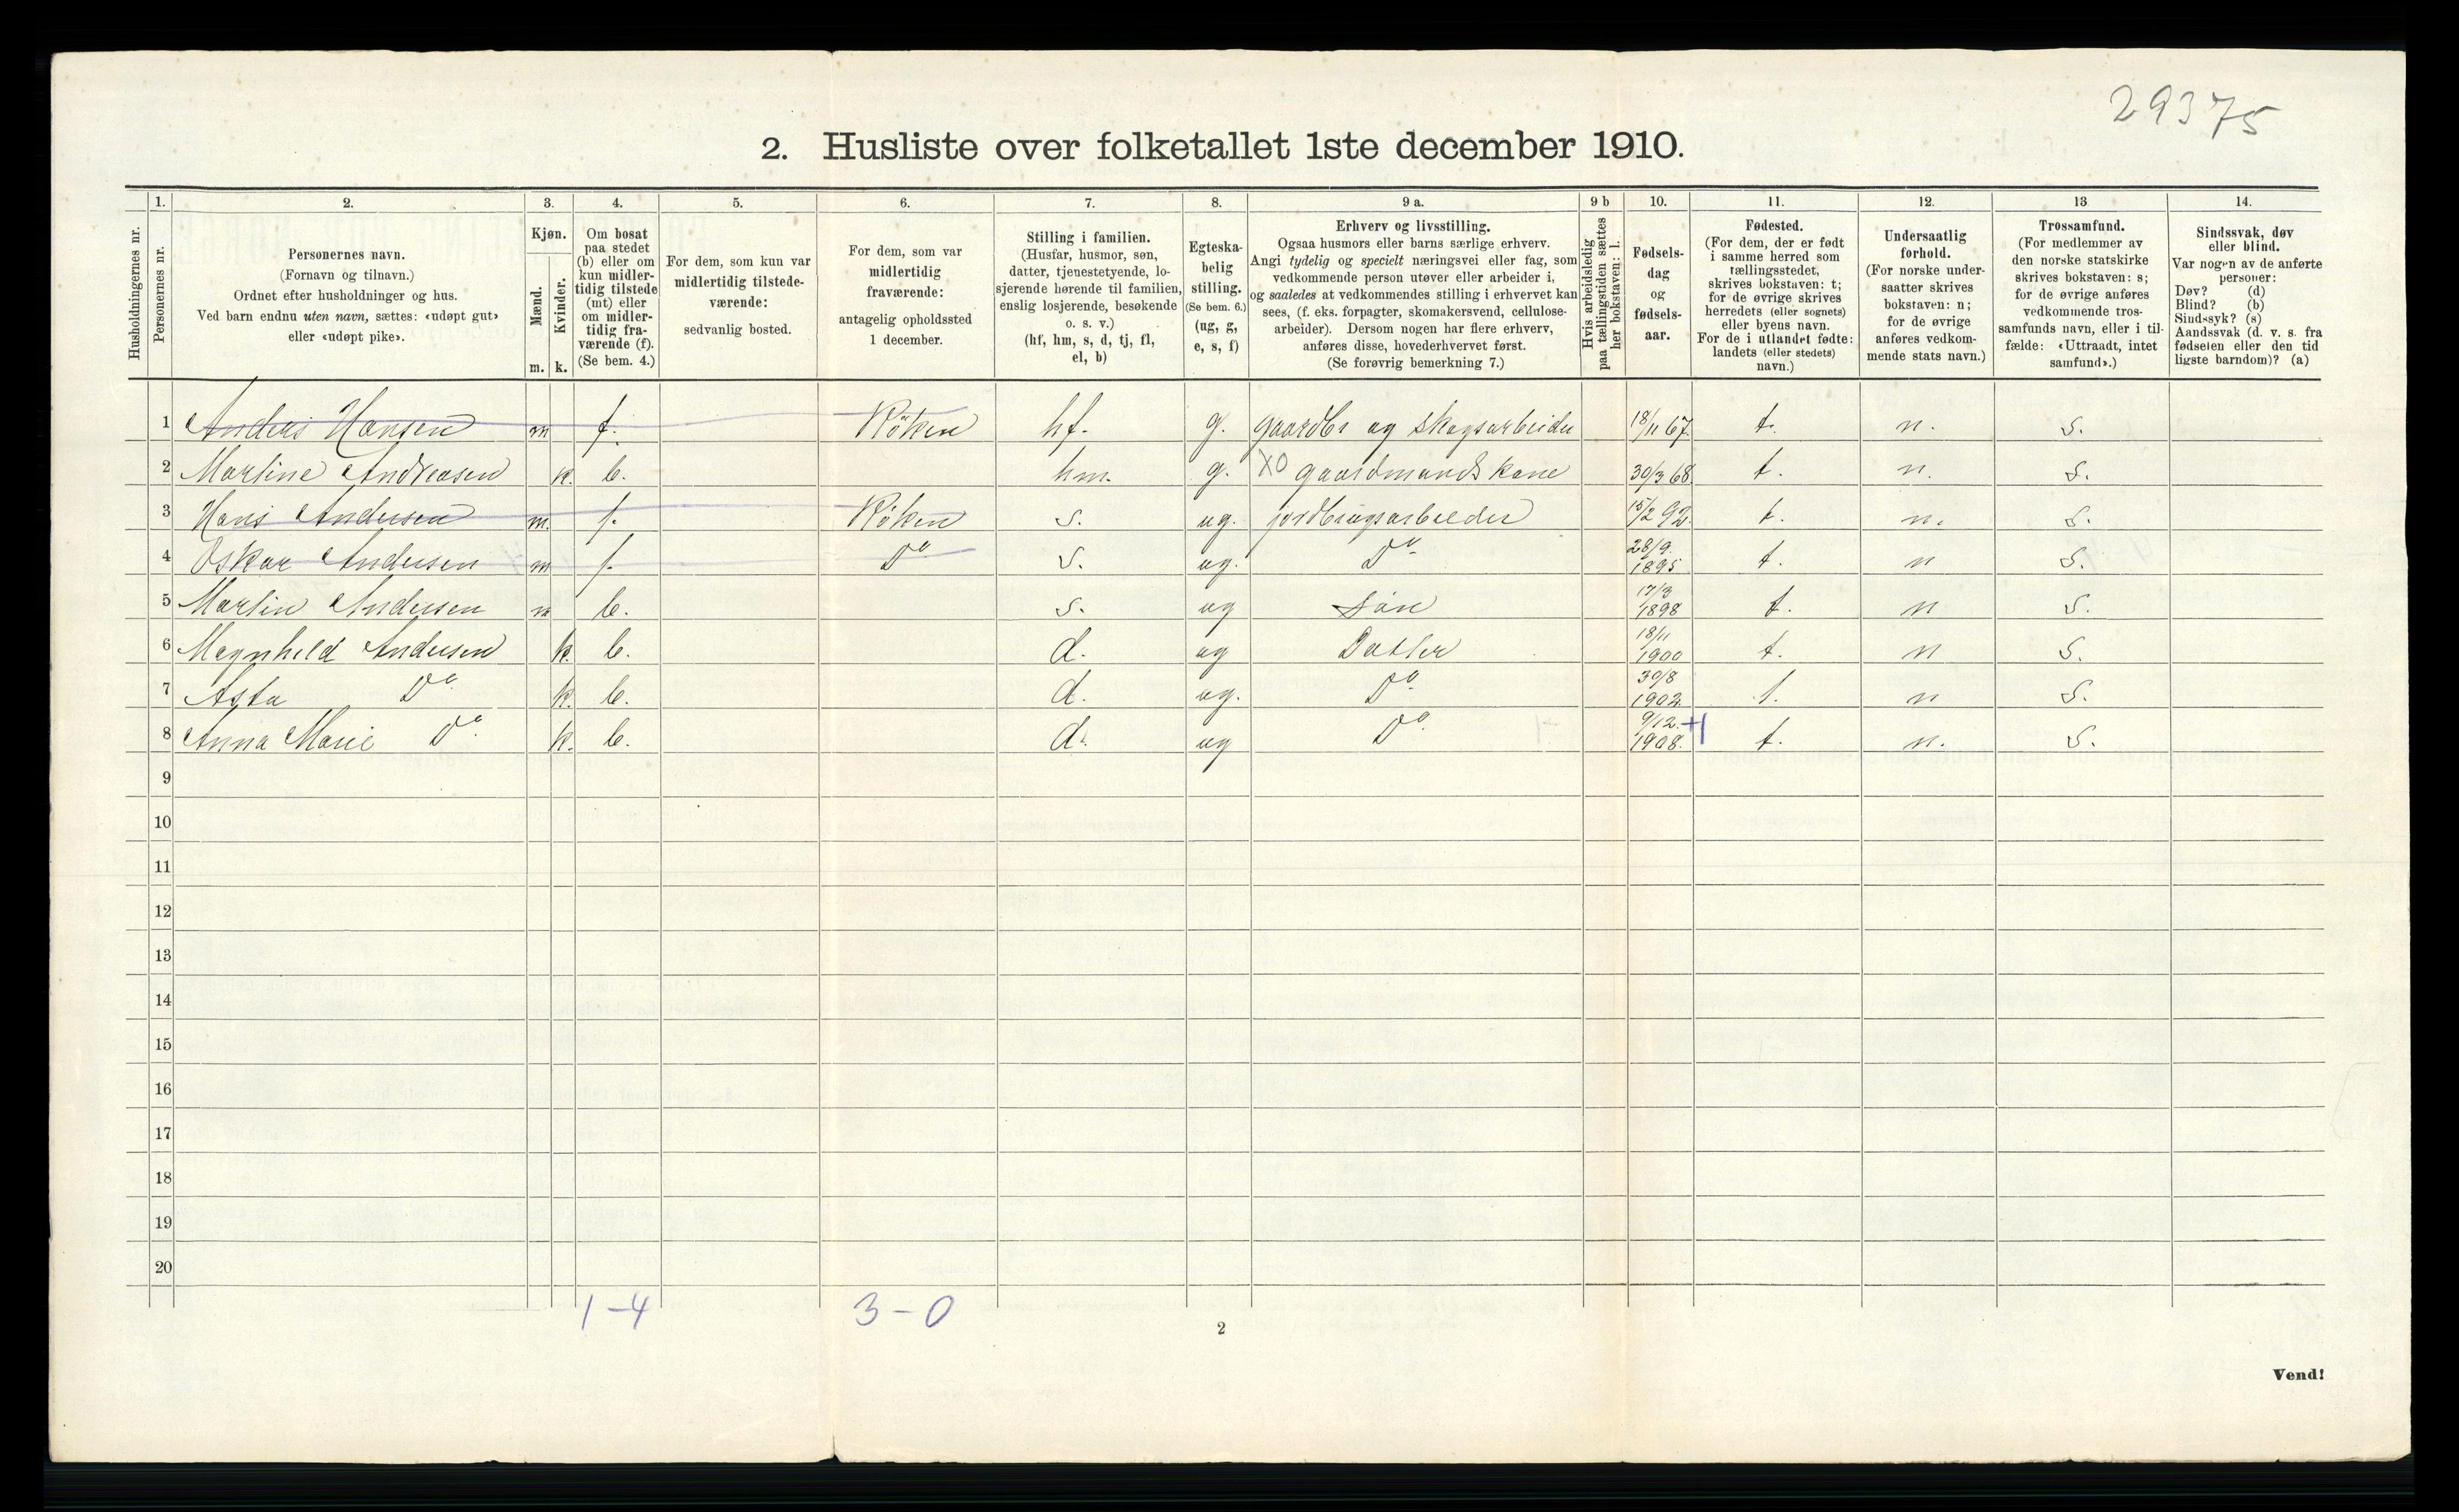 29375
2. Husliste over folketallet 1ste december 1910.
Husholdningernes nr.
1. Personernes nr.
2. Personernes navn. (Fornavn og tilnavn.) Ordnet efter husholdninger og hus. Ved barn endnu uten navn, sættes: «udøpt gut» eller «udøpt pike».
3. Kjøn. Mænd. m. Kvinder. k.
4. Om bosat paa stedet (b) eller om kun midlertidig tilstede (mt) eller om midlertidig fraværende (f). (Se bem. 4.)
5. For dem, som kun var midlertidig tilstedeværende: sedvanlig bosted.
6. For dem, som var midlertidig fraværende: antagelig opholdssted 1 december.
7. Stilling i familien. (Husfar, husmor, søn, datter, tjenestetyende, losjerende hørende til familien, enslig losjerende, besøkende o. s. v.) (hf, hm, s, d, tj, fl, el, b)
8. Egteskabelig stilling. (Se bem. 6.) (ug, g, e, s, f)
9 a. Erhverv og livsstilling. Ogsaa husmors eller barns særlige erhverv. Angi tydelig og specielt næringsvei eller fag, som vedkommende person utøver eller arbeider i, og saaledes at vedkommendes stilling i erhvervet kan sees, (f. eks. forpagter, skomakersvend, cellulosearbeider). Dersom nogen har flere erhverv, anføres disse, hovederhvervet først. (Se forøvrig bemerkning 7.)
9 b Hvis arbeidsledig paa tællingstiden sættes her bokstaven: l.
10. Fødselsdag og fødselsaar.
11. Fødested. (For dem, der er født i samme herred som tællingsstedet, skrives bokstaven: t; for de øvrige skrives herredets (eller sognets) eller byens navn. For de i utlandet fødte: landets (eller stedets) navn.)
12. Undersaatlig forhold. (For norske undersaatter skrives bokstaven: n; for de øvrige anføres vedkommende stats navn.)
13 Trossamfund. (For medlemmer av den norske statskirke skrives bokstaven: s; for de øvrige anføres vedkommende trossamfunds navn, eller i tilfælde: «Uttraadt, intet samfund».)
14. Sindssvak, døv eller blind. Var nogen av de anførte personer: Døv? (d) Blind? (b) Sindssyk? (s) Aandssvak (d. v. s. fra fødselen eller den tid ligste barndom)? (a)
1 Anders Hansen m f. Røken hf. g. gaardbr og skogsarbeider 18/11 67. t. n. s.
2 Martine Andreasen k. b. hm. g. XO gaardmandskone 30/3 68. t. n. s.
3 Hans Andersen m. f. Røken s. ug. jordbrugsarbeider 15/2 92. t. n. s.
4 Oskar Andersen m f. Do s. ug. Do 28/9. 1895 t. n s.
5 Martin Andersen m b. s. ug Søn 17/3 1898 t. n s.
6 Magnhild Andersen k. b. d. ug Datter 18/11 1900 t. n s.
7 Asta Do k. b. d. ug. Do 30/8 1902. t. n s.
8 Anna Marie Do k. b. d. ug Do 9/12. 1908. t. n. s.
9
10
11
12
13
14
15
16
17
18
19
20
1-4 3-0
2
Vend!